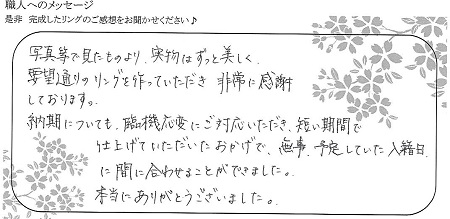 職人へのメッセージ
是非 完成したリングのご感想をお聞かせください♪
写真等で見たものより、実物はずっと美しく、
要望通りのリングを作っていただき 非常に感謝
しております。
納期についても、臨機応変にご対応いただき、短い期間で
仕上げていただいたおかげで、無事、予定していた入籍日
に間に合わせることができました。
本当にありがとうございました。